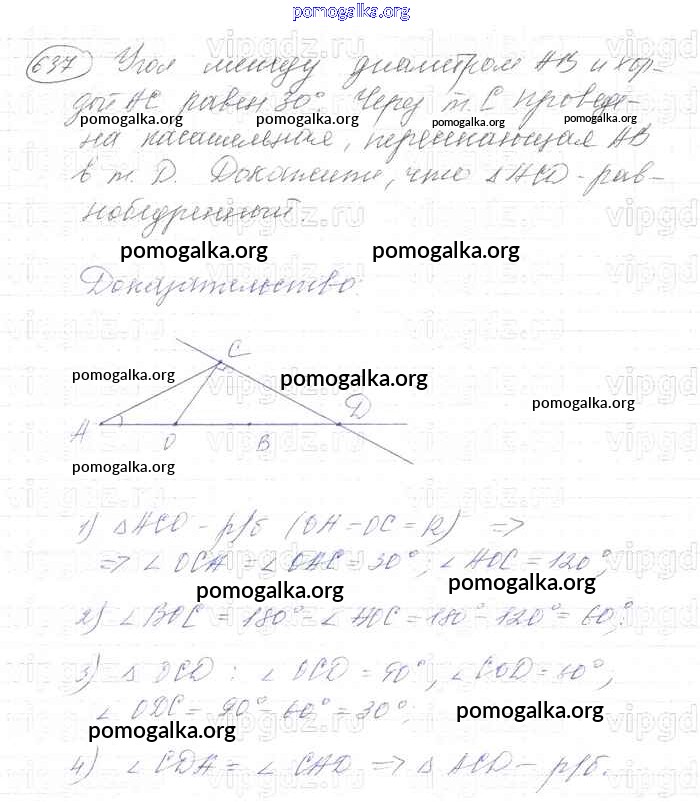 pomogalka.org
637 Угол между диаметром AB и хор-
дой AC равен 30°. Через т. C проведе-
pomogalka.org pomogalka.org pomogalka.org pomogalka.org
на касательная, пересекающая AB
в т. D. Докажите, что △ACD - рав-
нобедренный.
pomogalka.org pomogalka.org
Доказательство:
C
pomogalka.org pomogalka.org
D pomogalka.org
A O B
pomogalka.org
1) △ACO - р/б (OA = OC = R) =>
=> ∠OCA = ∠OAC = 30°; ∠AOC = 120°;
pomogalka.org pomogalka.org
2) ∠BOC = 180° - ∠AOC = 180° - 120° = 60°;
3) △OCD : ∠OCD = 90°, ∠COD = 60°,
∠ODC = 90° - 60° = 30°;
pomogalka.org pomogalka.org
4) ∠CDA = ∠CAD => △ACD - р/б.